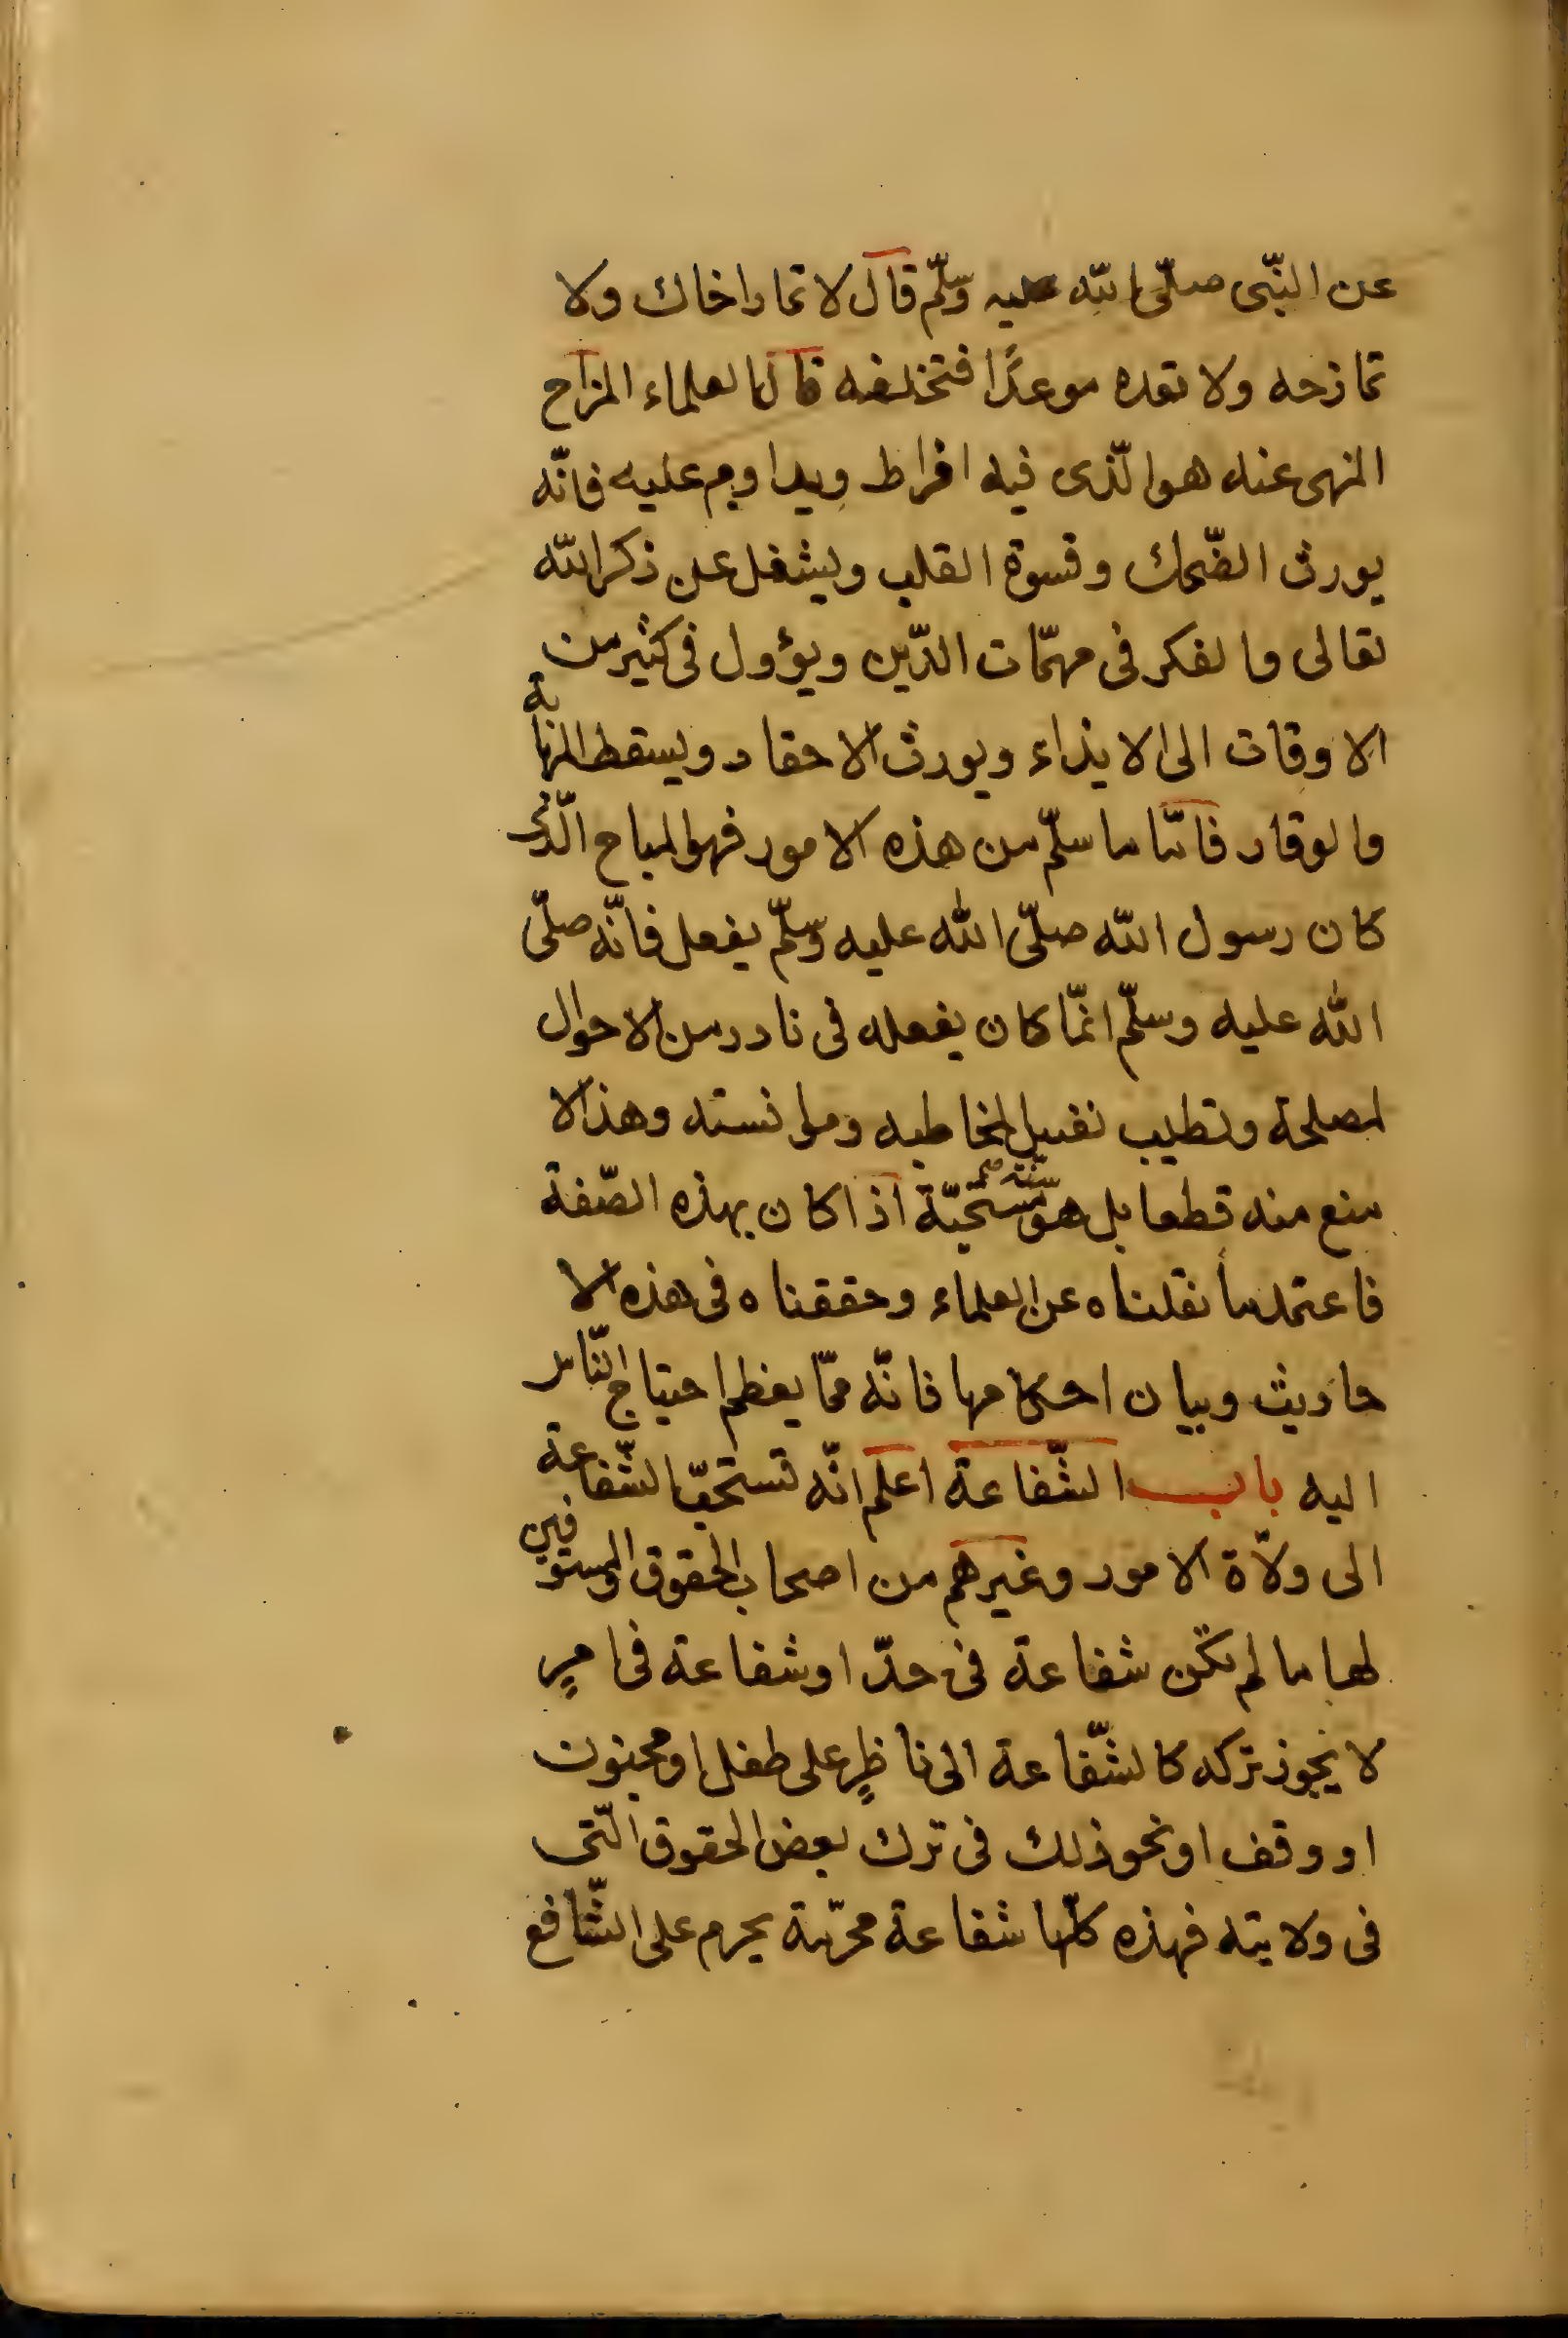 عن النّبى صلّى اللّه عليه وسلّم قال لا تمار اخاك ولا
تمازحه ولا تعده موعدًا فتخلفه قال العلماء المزاح
المنهى عنه هو الّذى فيه افراط ويداوم عليه فانّه
يورث الضّحك وقسوة القلب ويشغل عن ذكر اللّه
تعالى والفكر فى مهمّات الدّين ويؤول فى كثير من
الاوقات الى الايذاء ويورث الاحقاد ويسقط المهابة
والوقار فامّا ما سلّم من هذه الامور فهو المباح الّذى
كان رسول اللّه صلّى اللّه عليه وسلّم يفعل فانّه صلّى
اللّه عليه وسلّم انّما كان يفعله فى نادر من الاحوال
لمصلحة وتطيب نفس المخاطبه وموانسته وهذا لا
منع منه قطعا بل هو سنّة مستحبّة اذا كان بهذه الصّفة
فاعتمد ما نقلناه عن العلماء وحققناه فى هذه الا
حاديث وبيان احكامها فانّه ممّا يعظم احتياج النّاس
اليه باب الشّفاعة اعلم انّه تستحبّ الشّفاعة
الى ولاّة الامور وغيرهم من اصحاب الحقوق والمستوفين
لها ما لم تكن شفاعة فى حدّ او شفاعة فى امرٍ
لا يجوز تركه كالشّفاعة الى ناظرٍ على طفل او مجنون
او وقف او نحو ذلك فى ترك بعض الحقوق الّتى
فى ولايته فهذه كلّها شفاعة محرّمة يحرم على الشّافع